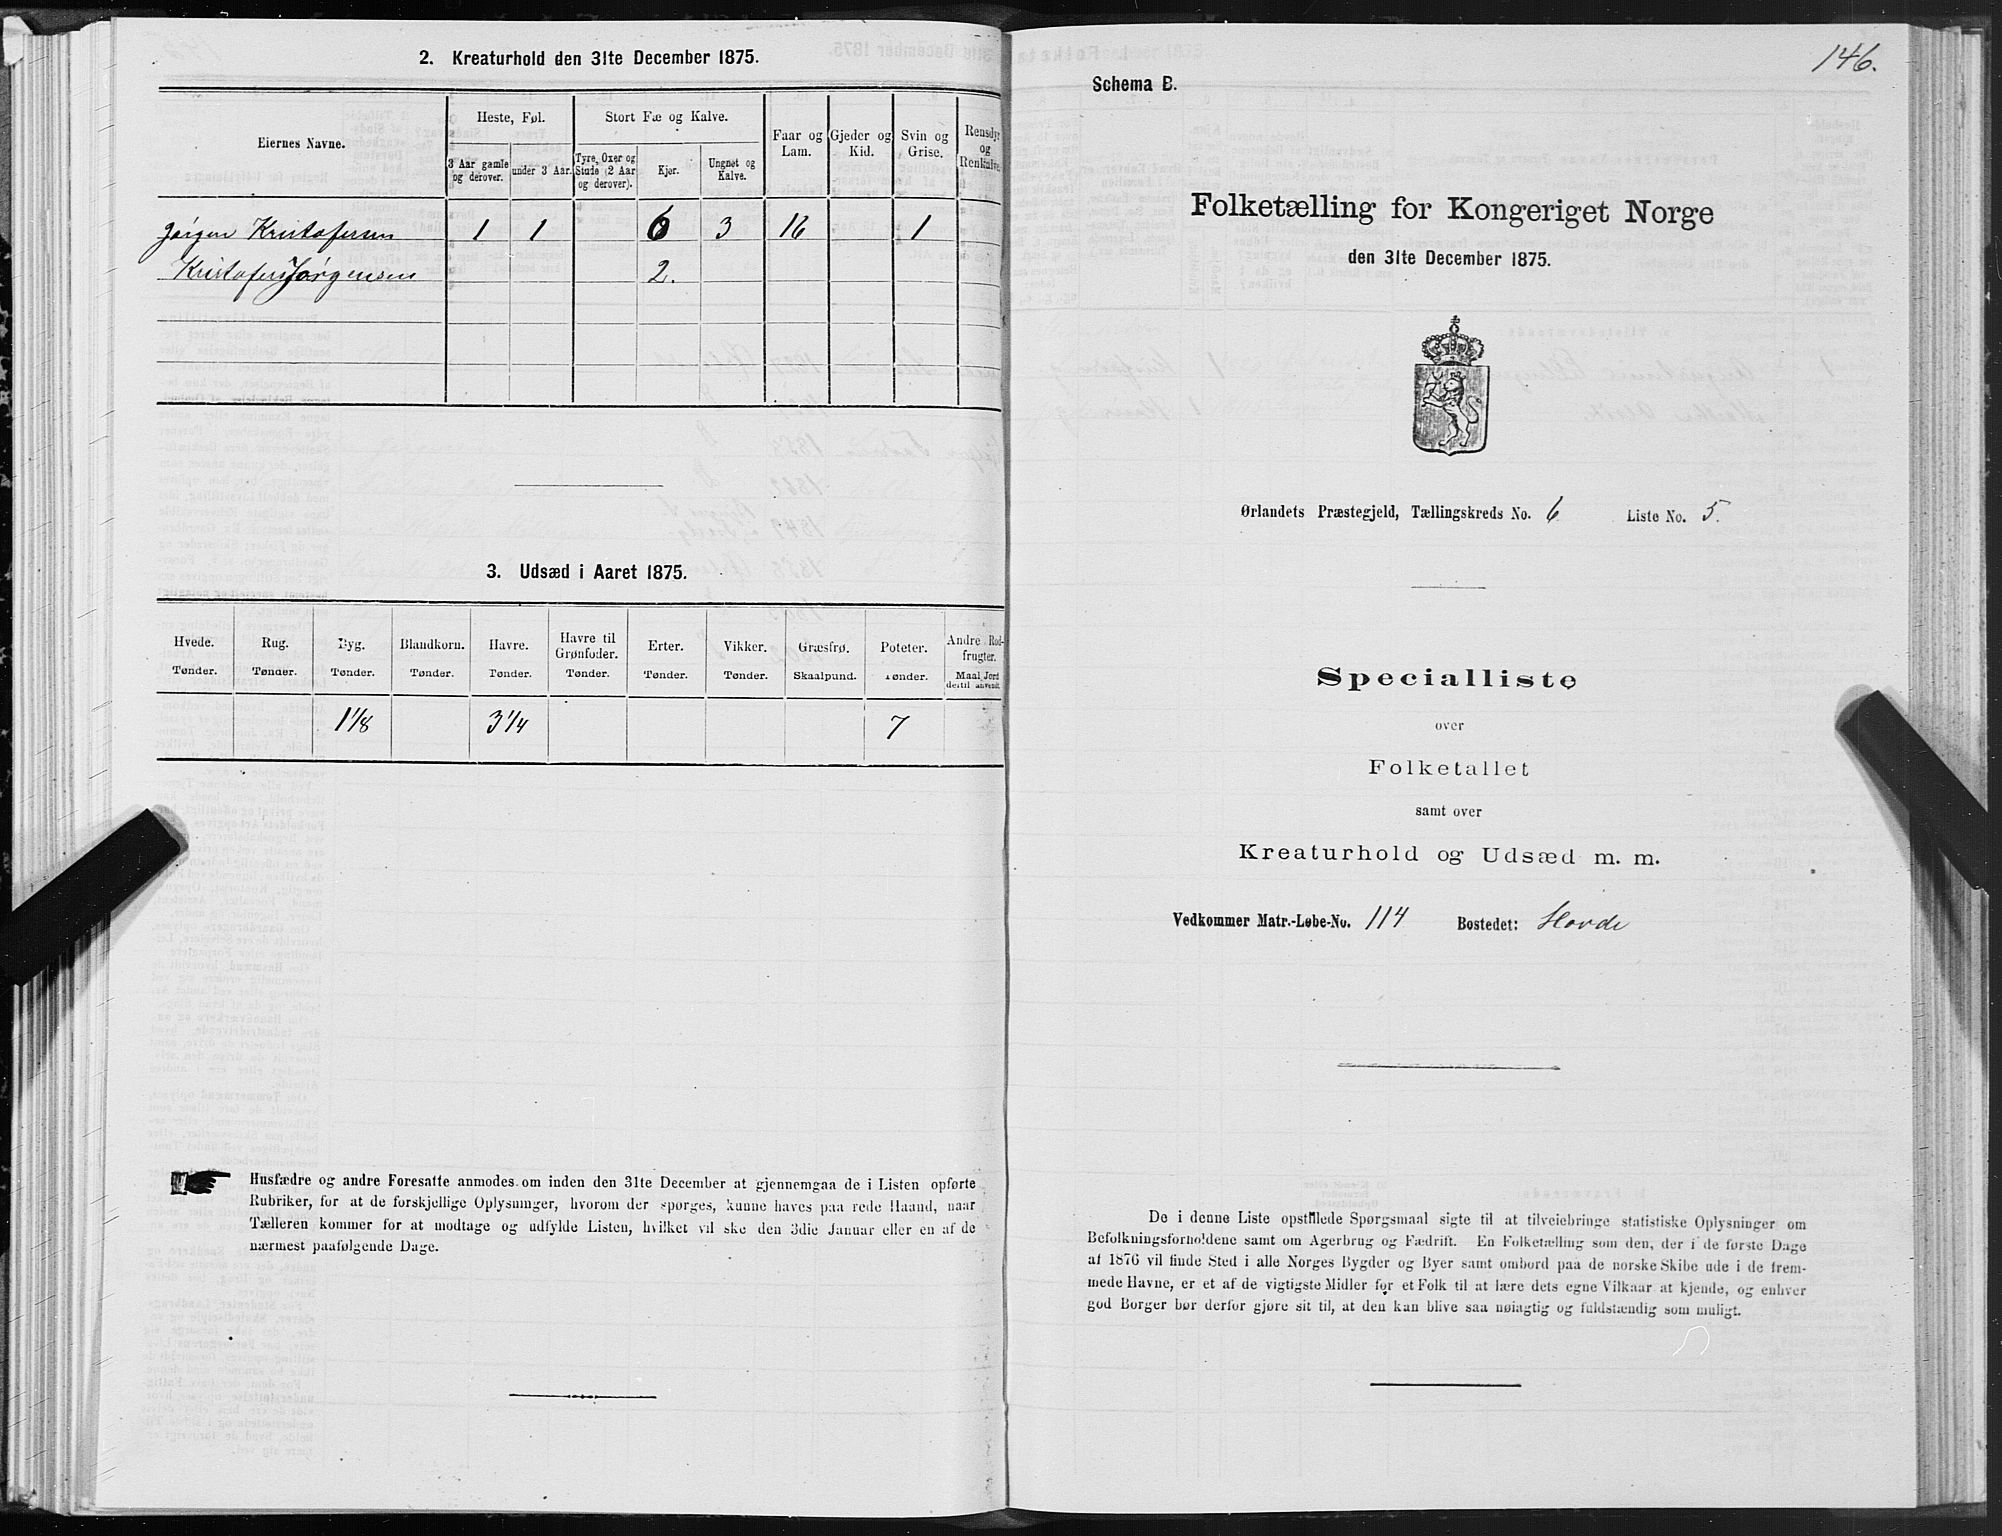 2. Kreaturhold den 31te December 1875.
Eiernes Navne.
Heste, Føl.
Stort Fæ og Kalve.
Faar og Lam.
Gjeder og Kid.
Svin og Grise.
Rensdyr og Renkalve.
3 Aar gamle og derover.
under 3 Aar.
Tyre, Oxer og Stude (2 Aar og derover).
Kjør.
Ungnøt og Kalve.
Jørgen Kristofersen 1 1 6 3 16 1
Kristofer Jørgensen 2.
3. Udsæd i Aaret 1875.
Hvede. Rug. Byg. Blandkorn. Havre. Havre til Grønfoder. Erter. Vikker. Græsfrø. Poteter. Andre Rodfrugter.
Tønder. Tønder. Tønder. Tønder. Tønder. Tønder. Tønder. Tønder. Skaalpund. Tønder. Maal Jord dertil anvendt.
1 1/8 3 1/4 7
Husfædre og andre Foresatte anmodes om inden den 31te December at gjennemgaa de i Listen opførte
Rubriker, for at de forskjellige Oplysninger, hvorom der spørges, kunne haves paa rede Haand, naar
Tælleren kommer for at modtage og udfylde Listen, hvilket vil ske den 3die Januar eller en af de
nærmest paafølgende Dage.
146.
Schema B.
Folketælling for Kongeriget Norge
den 31te December 1875.
Ørlandets Præstegjeld, Tællingskreds No. 6 Liste No. 5.
Specialliste
over
Folketallet
samt over
Kreaturhold og Udsæd m. m.
Vedkommer Matr.-Løbe-No. 114 Bostedet: Hovde
De i denne Liste opstillede Spørgsmaal sigte til at tilveiebringe statistiske Oplysninger om
Befolkningsforholdene samt om Agerbrug og Fædrift. En Folketælling som den, der i de første Dage
af 1876 vil finde Sted i alle Norges Bygder og Byer samt ombord paa de norske Skibe ude i de frem-
mede Havne, er et af de vigtigste Midler for et Folk til at lære dets egne Vilkaar at kjende, og enhver
god Borger bør derfor gjøre sit til, at den kan blive saa nøiagtig og fuldstændig som muligt.